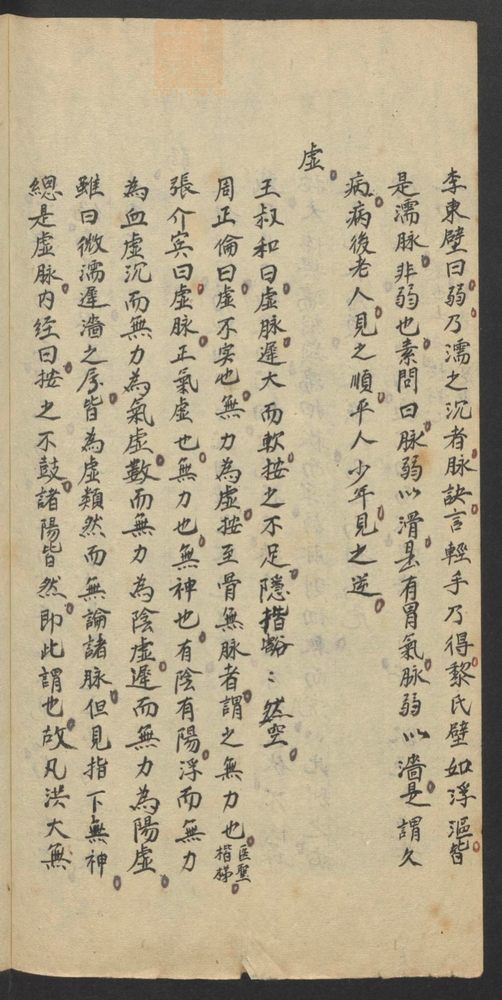 李東壁曰弱乃濡之沉者脉訣言輕手乃得黎氏壁如浮漚皆
是濡脉非弱也素問曰脉弱以滑是有胃氣脉弱以濇是謂久
病病後老人見之順平人少年見之逆
虛
王叔和曰虛脉遲大而軟按之不足隱指豁〻然空
周正倫曰虛不实也無力為虛按至骨無脉者謂之無力也醫聖楷梯
張介宾曰虛脉正氣虛也無力也無神也有陰有陽浮而無力
為血虛沉而無力為氣虛數而無力為陰虛遲而無力為陽虛
雖曰微濡遲濇之属皆為虛類然而無論諸脉但見指下無神
總是虛脉内经曰按之不鼓諸陽皆然即此謂也故凡洪大無